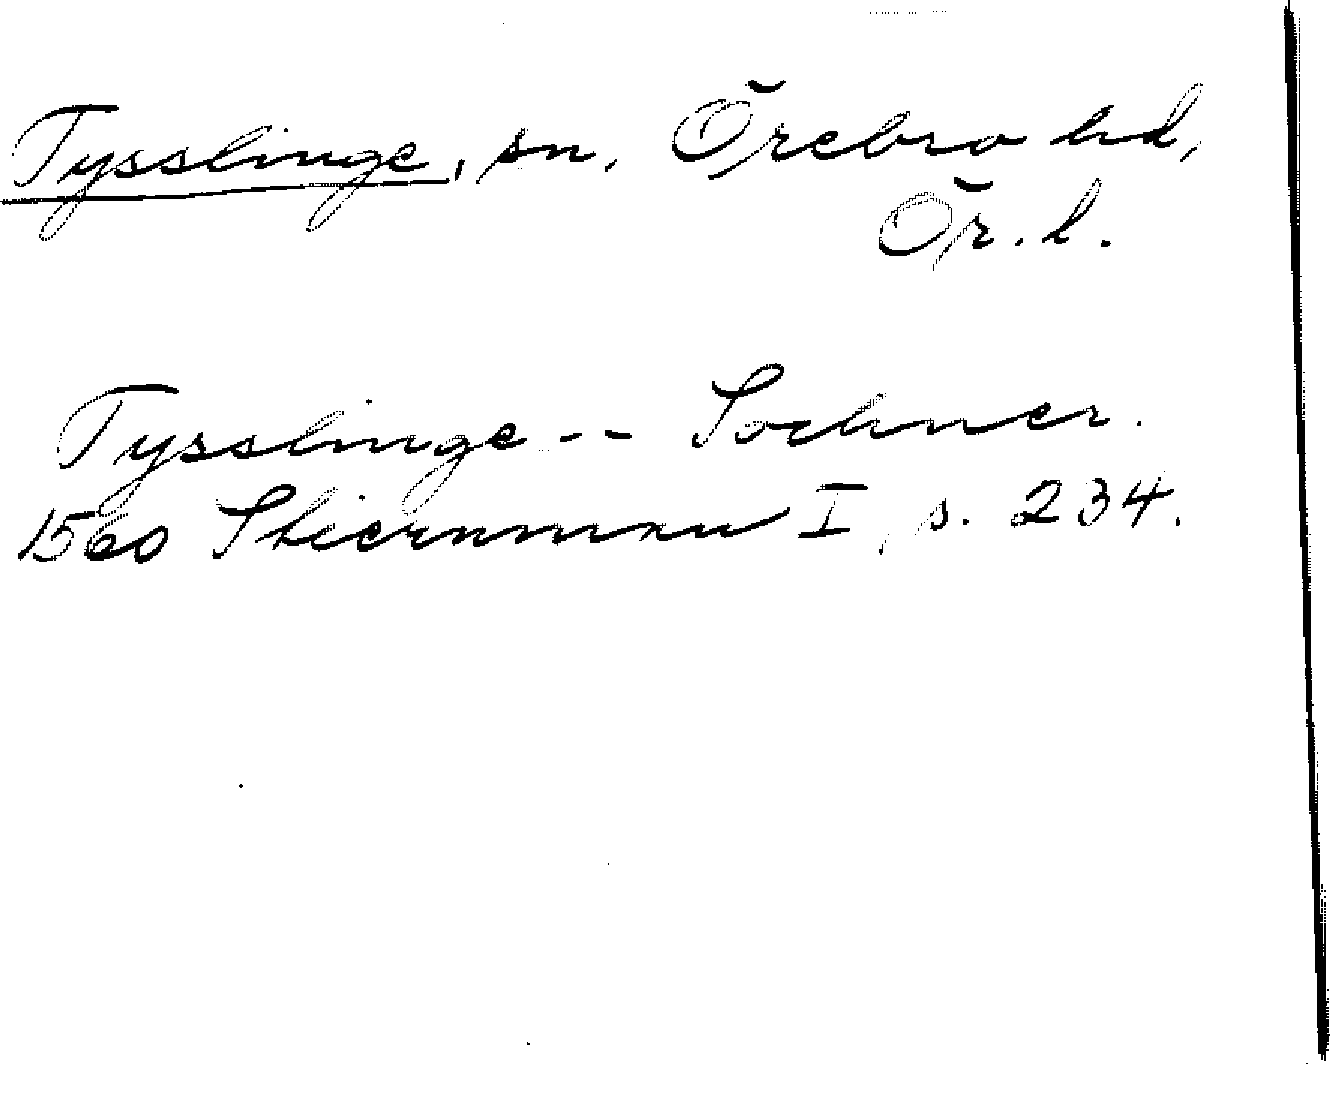 Tysslinge, sn, Örebro hd,
Ör. l.
Tysslinge -- Sochner.
1560 Stiernman I, s. 234.